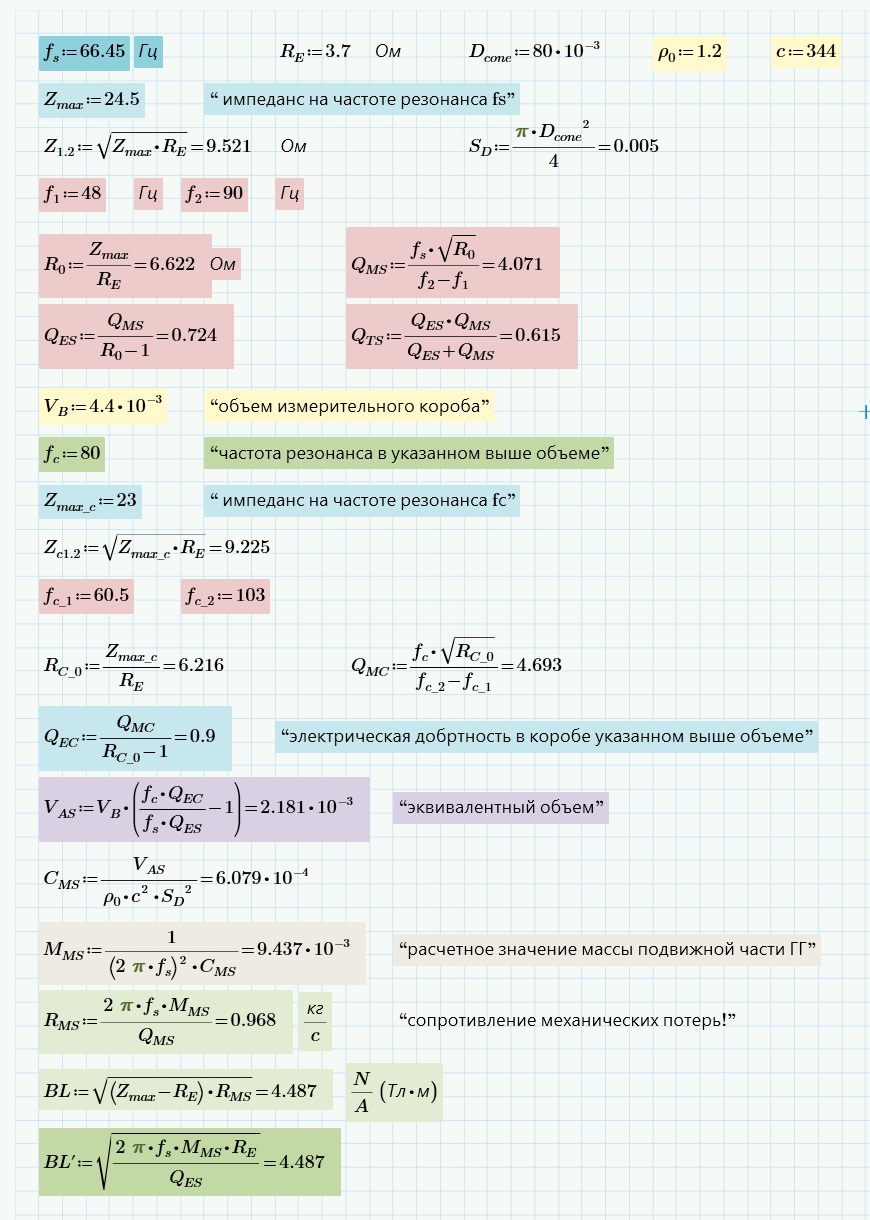 f_s:=66.45 Гц R_E:=3.7 Ом D_cone:=80•10^−3 ρ_0:=1.2 c:=344
Z_max:=24.5 “ импеданс на частоте резонанса fs”
Z_1.2:=√(Z_max•R_E)=9.521 Ом S_D:=(π•D_cone^2)/4=0.005
f_1:=48 Гц f_2:=90 Гц
R_0:=Z_max/R_E=6.622 Ом Q_MS:=(f_s•√R_0)/(f_2−f_1)=4.071
Q_ES:=Q_MS/(R_0−1)=0.724 Q_TS:=(Q_ES•Q_MS)/(Q_ES+Q_MS)=0.615
V_B:=4.4•10^−3 “объем измерительного короба”
f_c:=80 “частота резонанса в указанном выше объеме”
Z_max_c:=23 “ импеданс на частоте резонанса fc”
Z_c1.2:=√(Z_max_c•R_E)=9.225
f_c_1:=60.5 f_c_2:=103
R_C_0:=Z_max_c/R_E=6.216 Q_MC:=(f_c•√R_C_0)/(f_c_2−f_c_1)=4.693
Q_EC:=Q_MC/(R_C_0−1)=0.9 “электрическая добртность в коробе указанном выше объеме”
V_AS:=V_B•((f_c•Q_EC)/(f_s•Q_ES)−1)=2.181•10^−3 “эквивалентный объем”
C_MS:=V_AS/(ρ_0•c^2•S_D^2)=6.079•10^−4
M_MS:=1/((2 π•f_s)^2•C_MS)=9.437•10^−3 “расчетное значение массы подвижной части ГГ”
R_MS:=(2 π•f_s•M_MS)/Q_MS=0.968 кг/с “сопротивление механических потерь!”
BL:=√((Z_max−R_E)•R_MS)=4.487 N/A (Тл•м)
BL′:=√((2 π•f_s•M_MS•R_E)/Q_ES)=4.487